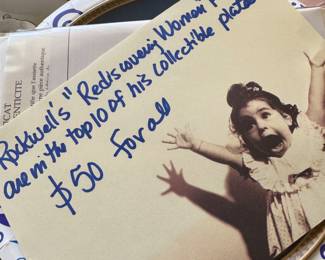 Rockwell's "Rediscovering Women" P
are in the top 10 of his collectible plates
$50 for all
CAT
ENTICITE